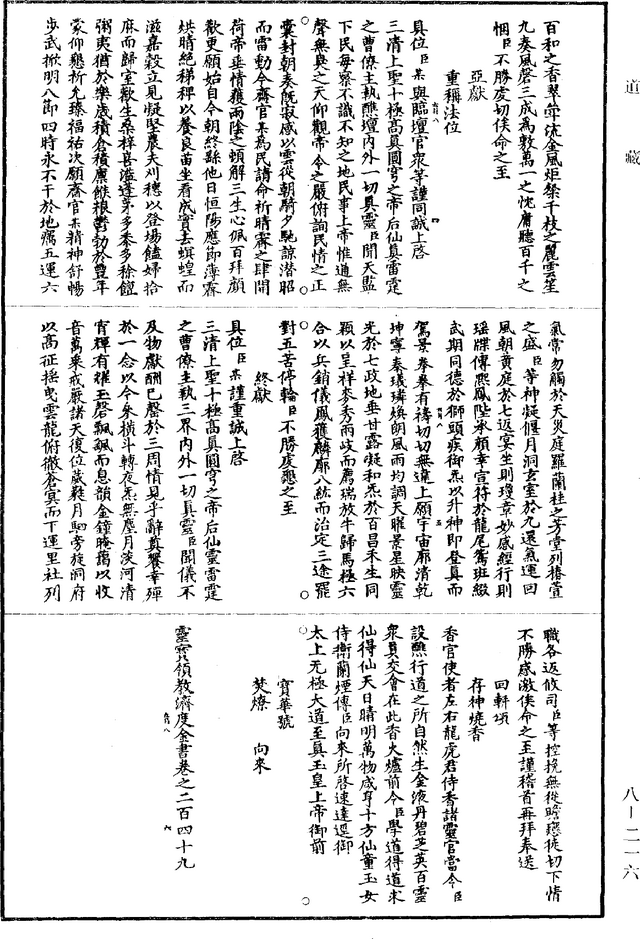 道藏
百和之香翠霏流金風炬槃千枝之麗雲笙
九奏風聲三成為敷萬一之忱庸聽百千之
悃臣不勝虔切俟命之至
亞獻
重稱法位
具位臣某與臨壇官眾等謹同誠上啓
三清上聖十極高真圓穹之帝后仙真雷霆
之曹僚主執醮壇內外一切真靈臣聞天監
下民每察不識不知之地民事上帝惟通無
聲無臭之天仰觀帝令之嚴俯詢民情之正
囊封朝奏旣寂感以雲從朝騎夕馳諒潛昭
而雷動今齋官某為民請命祈晴霽之肆開
荷帝垂情獲雨陰之頓解三生心佩百拜顏
歡更願始自今朝終繇他日恒暘應節薄霖
烘晴絕稊稗以養良苗坐看成實去螟蝗而
滋嘉穀立見凝堅農夫刈穗以登場饁婦拾
麻而歸室歡生桑梓喜溢逢茅多黍多稌饘
粥夷猶於樂歲積倉積廩餱粮鬱勃於豐年
蒙仰懇祈允臻福祐次願齋官某精神舒暢
步武掀明八節四時永不干於地癘五運六
氣常勿觸於天災庭羅蘭桂之芳堂列椿萱
之盛臣等神凝偃月洞玄室於九還氣運回
風朝黄庭於七返宴坐則瓊章妙感經行則
瑶牒傳熙鳳陛承顔幸宣符於龍尾鴛班綴
武期同德於獅頭疾御炁以升神即登真而
駕景拳拳有禱切切無違上願宇宙廓清乾
坤寧泰璣璘煥朗風雨均調天曜景星映靈
光於七政地垂甘露凝和炁於百昌禾生同
穎以呈祥麥秀兩岐而薦瑞放牛歸馬極六
合以兵銷儀鳳獲麟廓八紘而治定三途罷
對五苦停輪臣不勝虔懇之至
終獻
具位臣某謹重誠上啓
三清上聖十極高真圓穹之帝后仙靈雷霆
之曹僚主執三界內外一切真靈臣聞儀不
及物獻酬已罄於三周情見乎辭真饗幸殫
於一念以今參橫斗轉夜炁無塵月淡河清
宵輝有耀玉磬飄飄而息韻金鐘腌藹以收
音萬乘戒嚴諸天復位歲蕤月駟旁旋洞府
以高征摇曳雲龍俯徹倉寞而下運里社列
職各返攸司臣等控挽無從瞻戀徒切下情
不勝感激俟命之至謹稽首再拜奉送
回軿頌
存神燒香
香官使者左右龍虎君侍香諸靈官當令臣
設醮行道之所自然生金液丹碧芝英百靈
衆真交會在此香火爐前令臣學道得道求
仙得仙天日晴明萬物咸亨十方仙童玉女
侍衛蘭煙傳臣向來所啓速達逕御
太上无極大道至真玉皇上帝御前
寶華號
焚燎　向來
靈寶領教濟度金書卷之二百四十九
八－二一六